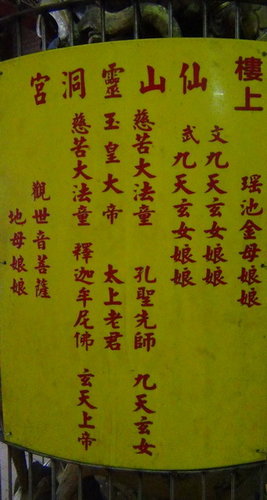 樓上
仙山靈洞宮
瑤池金母娘娘
文九天玄女娘娘
武九天玄女娘娘
慈苦大法童 孔聖先師 九天玄女
玉皇大帝 太上老君
慈苦大法童 釋迦牟尼佛 玄天上帝
觀世音菩薩
地母娘娘